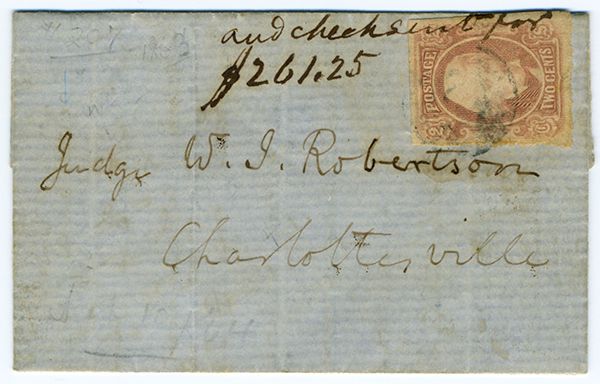 and check sent for
$261.25
POSTAGE
TWO CENTS
Judge W. J. Robertson
Charlottesville